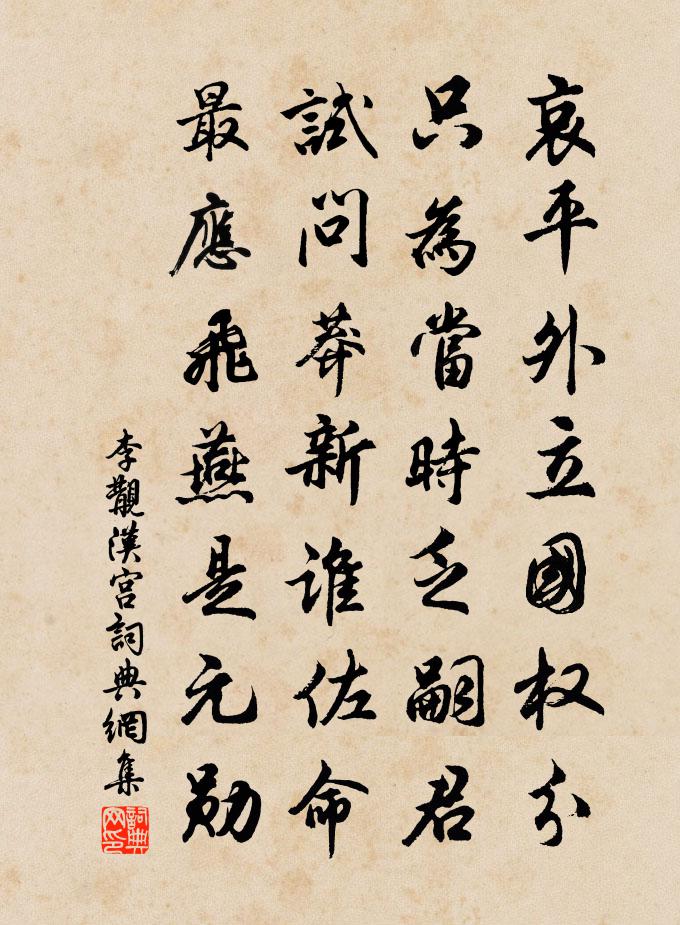 哀平外立國權分
只為當時乏嗣君
試問莽新誰佐命
最應飛燕是元勛
李覯漢宮詞典網集
詞典網印